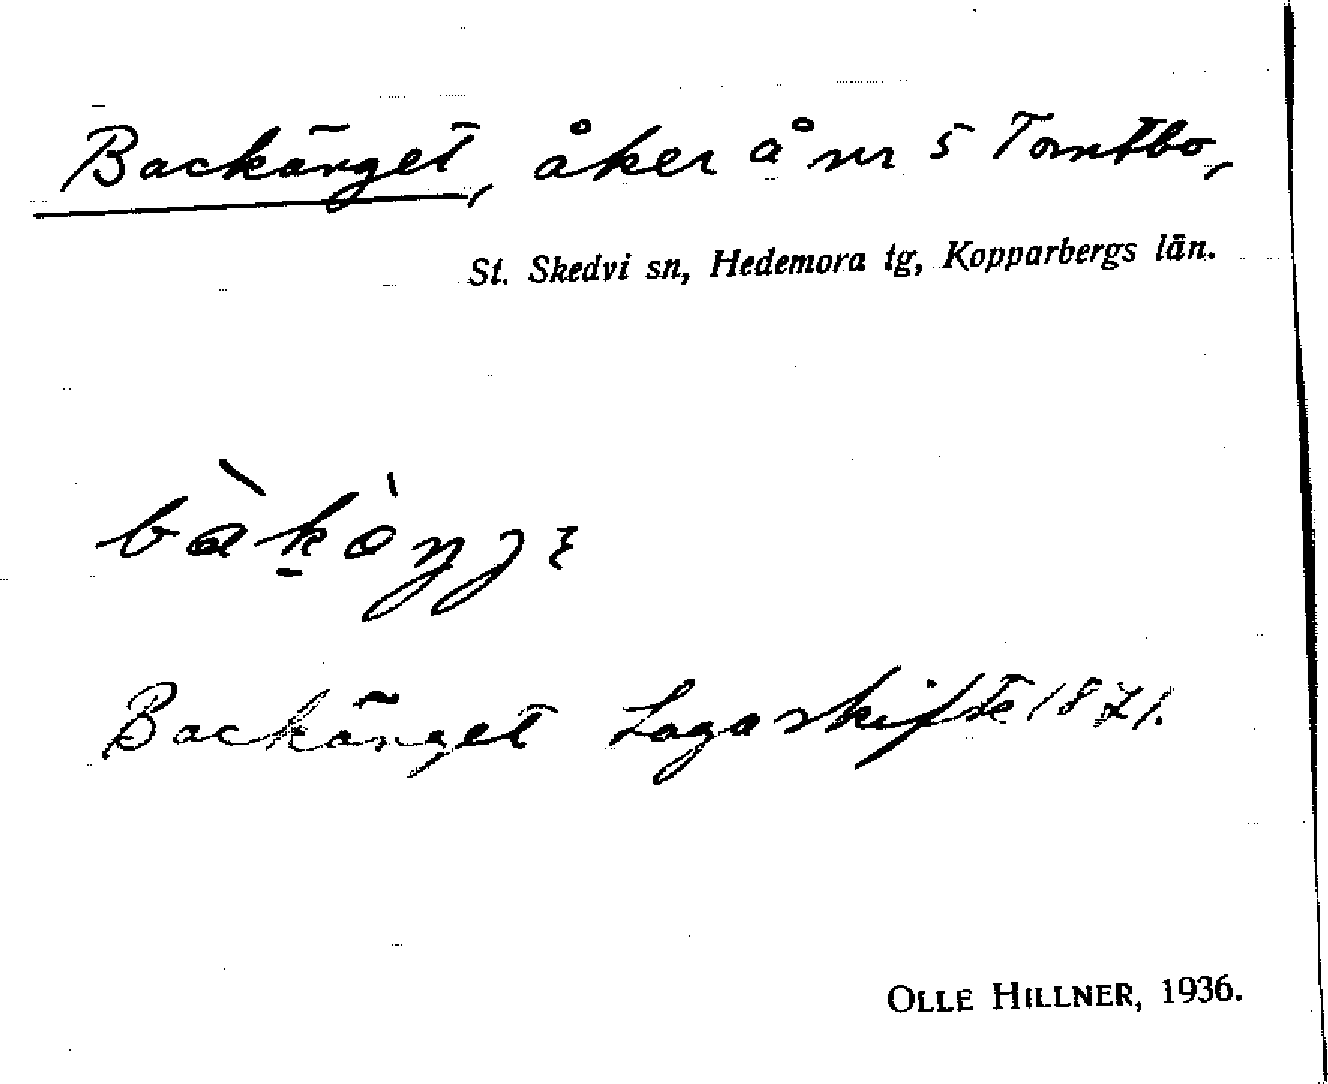 Backänget, åker å nr 5 Tomtbo,
St. Skedvi sn, Hedemora tg, Kopparbergs län.
Backänget Lagaskifte 1871.
OLLE HILLNER, 1936.